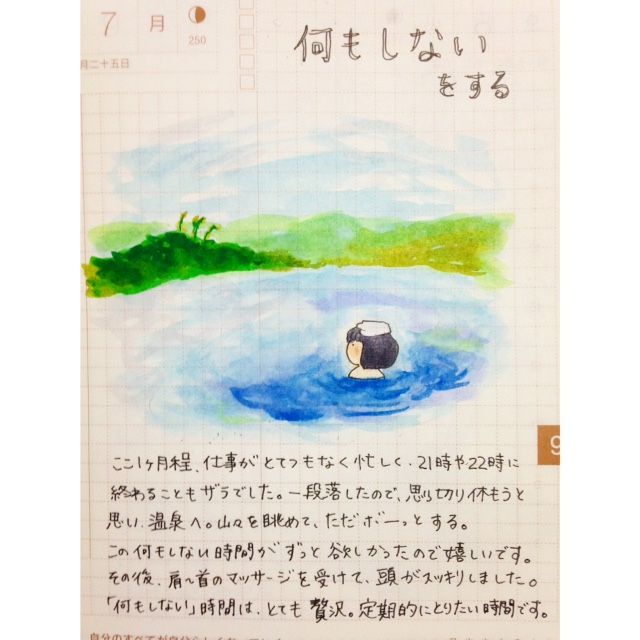 7 月
250
月二十五日
何もしない
をする
ここ1ヶ月程、仕事がとてつもなく忙しく、21時や22時に
終わることもザラでした。一段落したので、思い切り休もうと
思い、温泉へ。山々を眺めて、ただボーっとする。
この何もしない時間がずっと欲しかったので嬉しいです。
その後、肩〜首のマッサージを受けて、頭がスッキリしました。
「何もしない」時間は、とても贅沢。定期的にとりたい時間です。
9